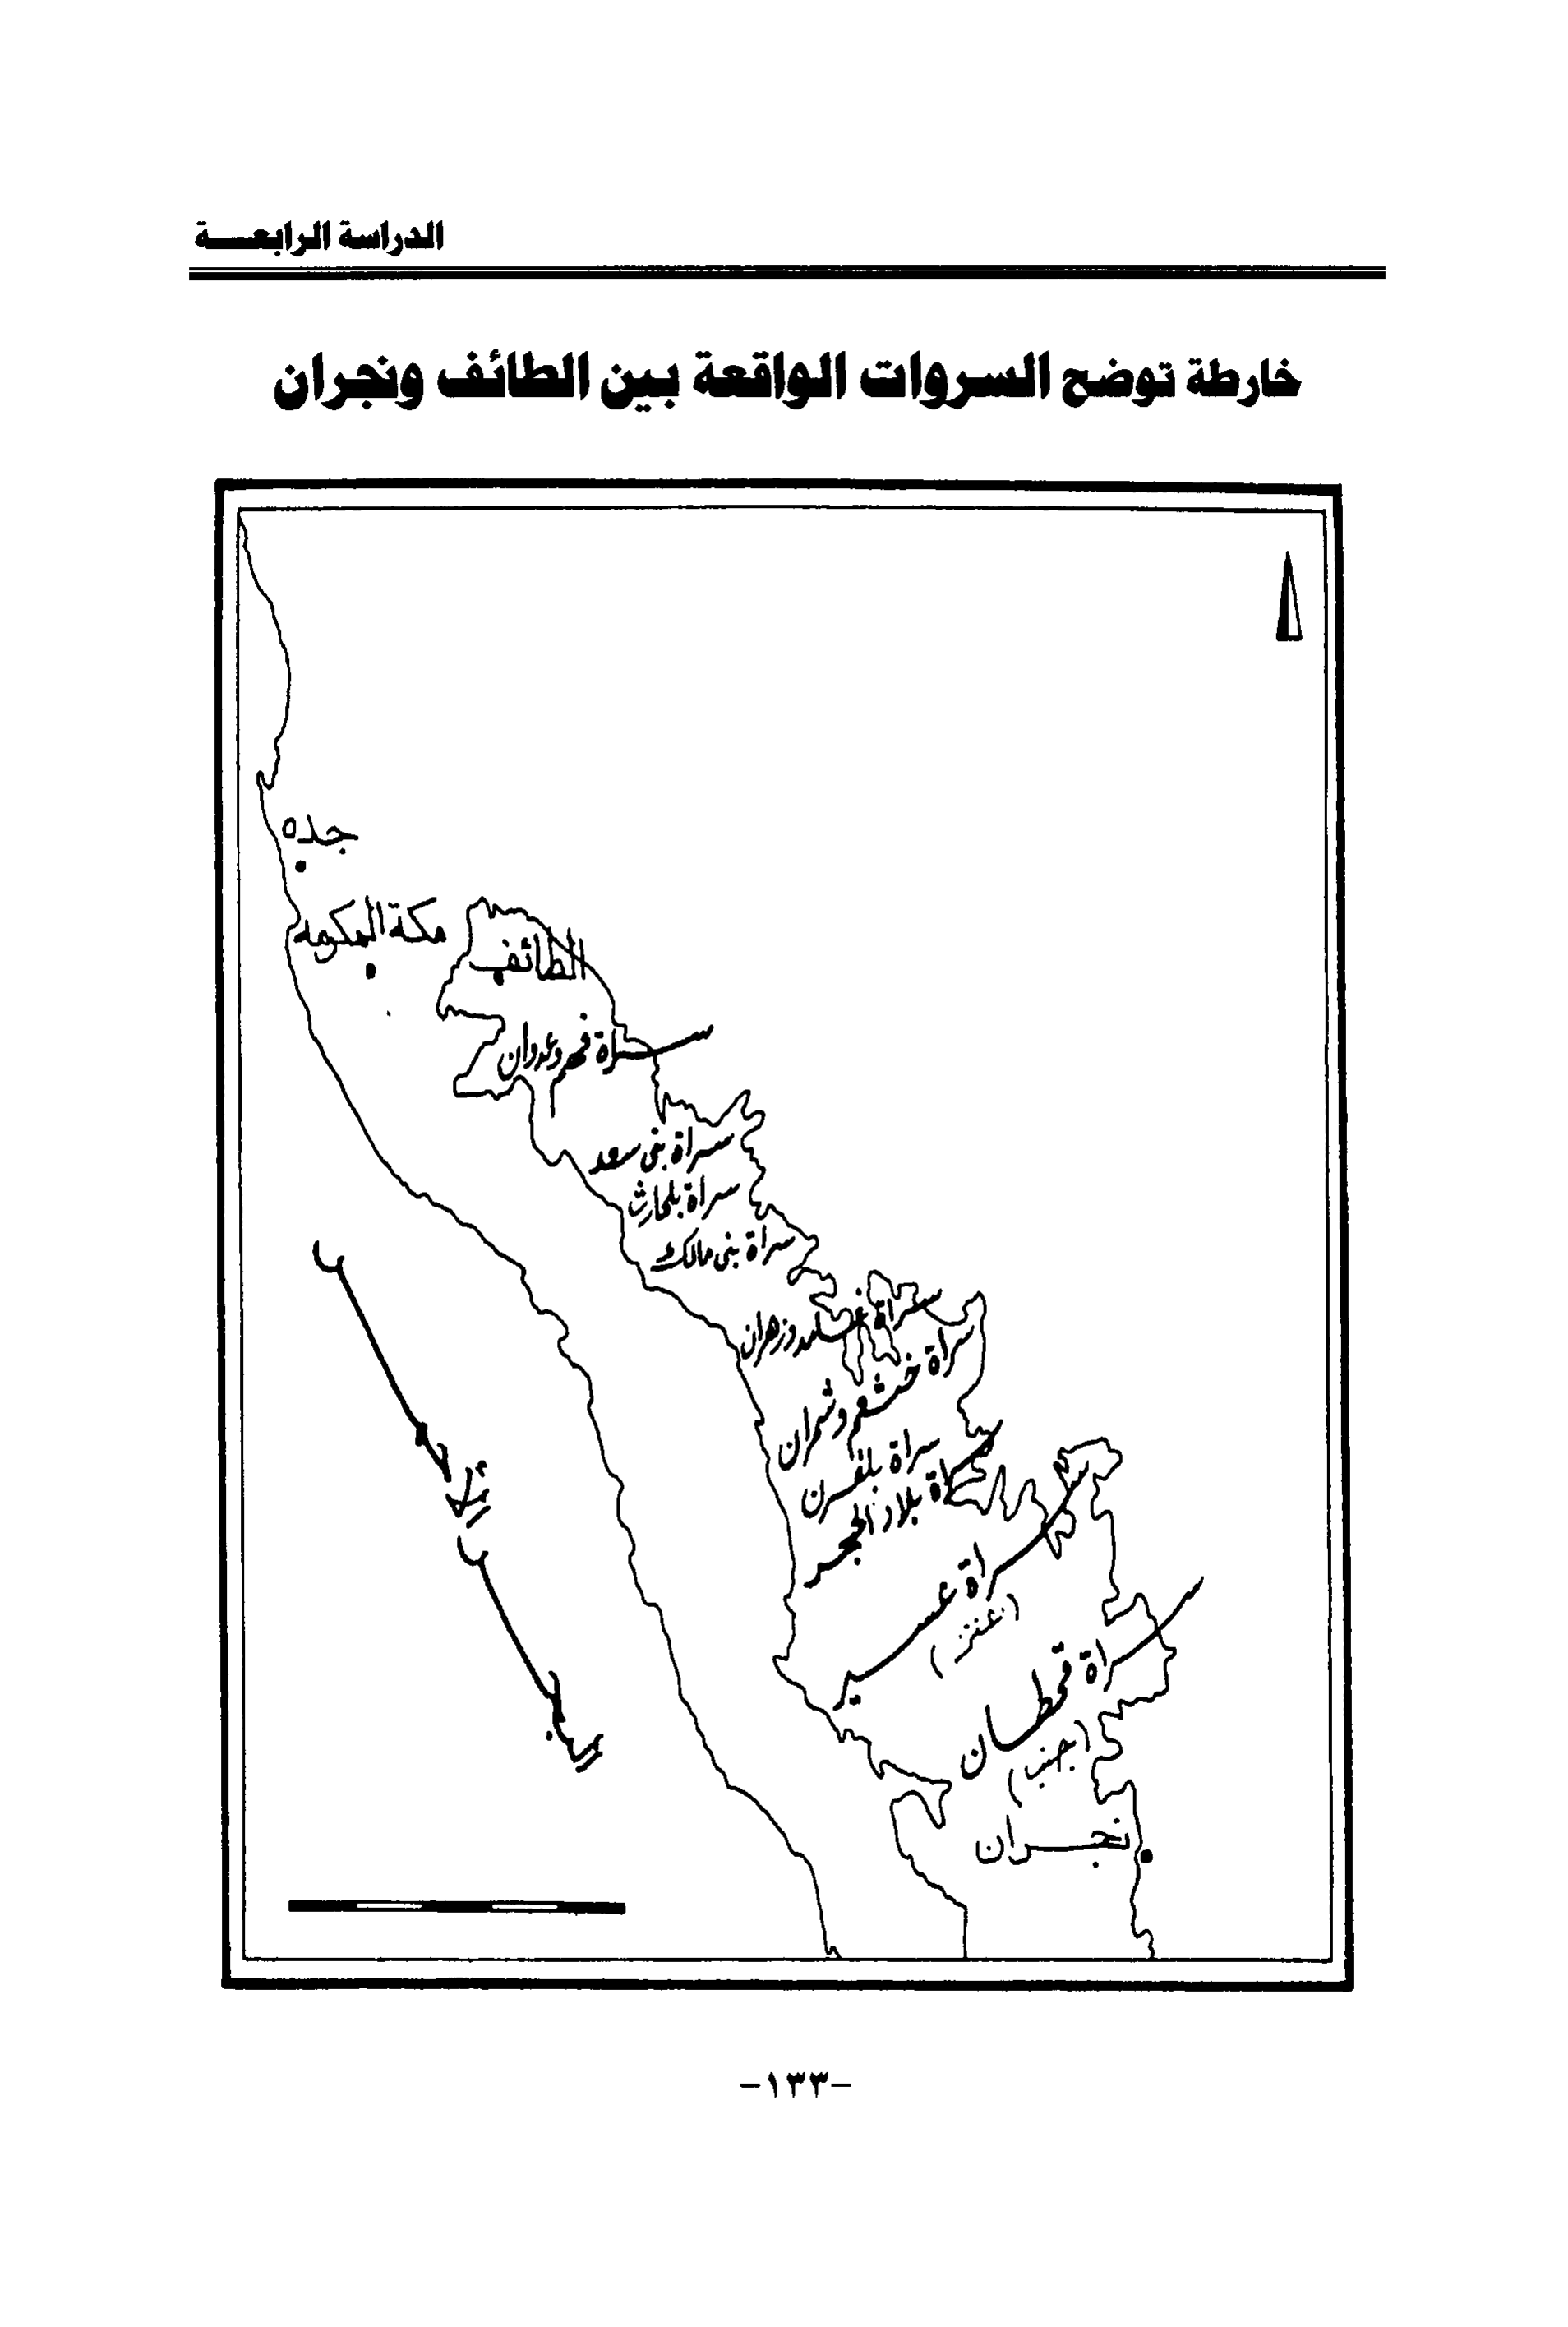 الدراسة الرابعـــة
خارطة توضح السروات الواقعة بين الطائف ونجران
جده
مكة المكرمه
الطائف
سراة فهم وعدوان
سراة بني سعد
سراة بلحارث
سراة بني مالك
سراة غامد وزهران
سراة خثعم وشمران
سراة بلقرن
سراة بلاد الحجر
سراة عسير
(عنز)
سراة قحطان
(جنب)
نجران
البحر الأحمر
-١٣٣-